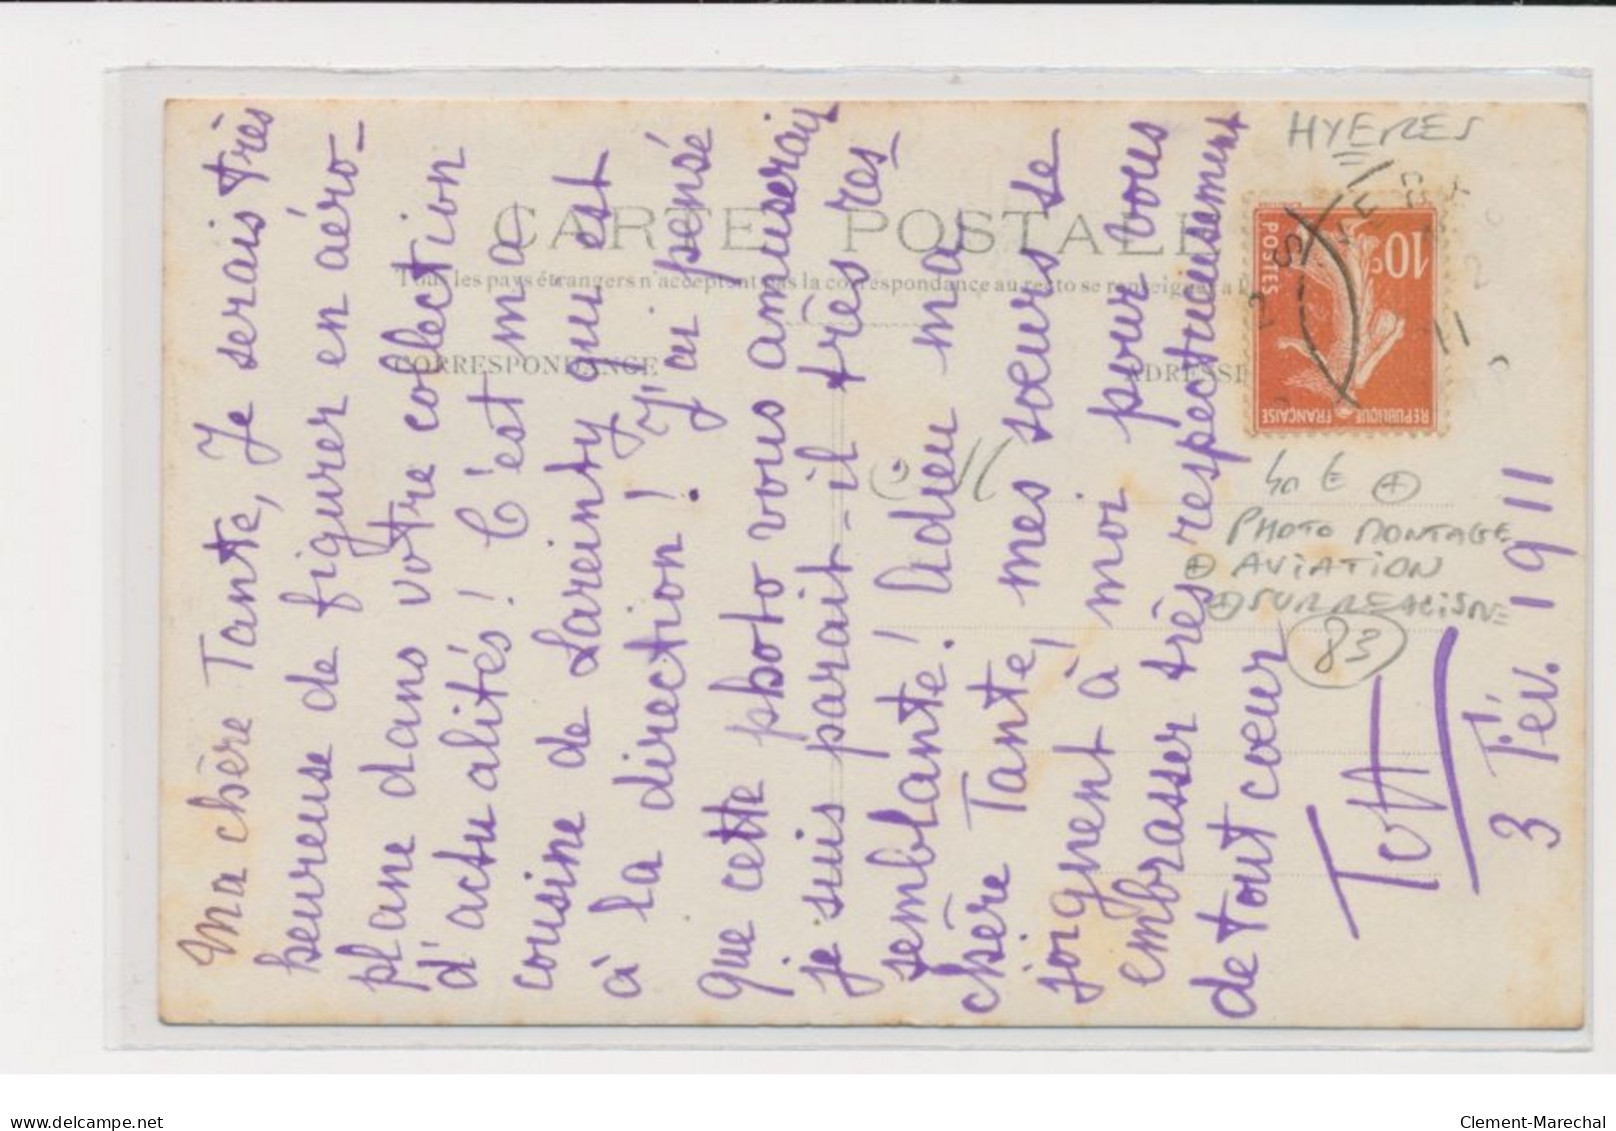 Ma chère Tante, Je serais très
heureuse de figurer en aéro-
plane dans votre collection
d'actualités! C'est ma
cousine de Lareinty qui est
à la direction! J'ai pensé
que cette photo vous amuserait
je suis parait-il très res-
semblante! Adieu ma
chère Tante, mes sœurs se
joignent à moi pour vous
embrasser très respectueusement
de tout cœur
3 Fév. 1911
CARTE POSTALE
Tous les pays étrangers n'acceptent pas la correspondance au recto se renseigner à la
CORRESPONDANCE
ADRESSE
HYERES
10c
POSTES
REPUBLIQUE FRANÇAISE
PHOTO MONTAGE
AVIATION
SURREALISME
83
www.delcampe.net
Clement-Marechal